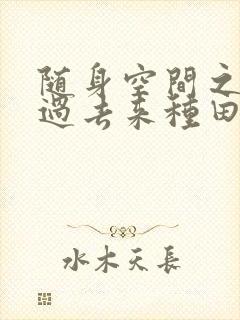 随身空間之
過去來種田
水木天長